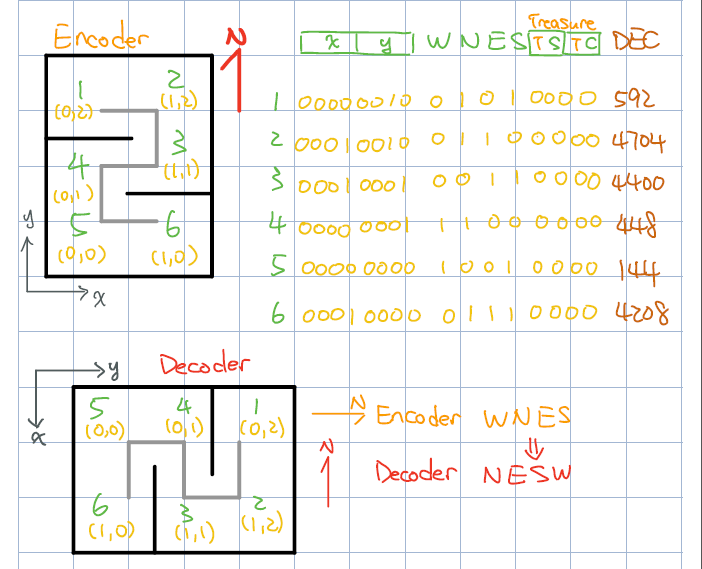 Encoder
N
Treasure
x y W N E S TS TC DEC
1 2
(0,2) (1,2)
3
4 (1,1)
(0,1)
5 6
(0,0) (1,0)
y
x
1 00000010 0 1 0 1 0000 592
2 00010010 0 1 1 0 0000 4704
3 00010001 0 0 1 1 0000 4400
4 00000001 1 1 0 0 0000 448
5 00000000 1 0 0 1 0000 144
6 00010000 0 1 1 1 0000 4208
Decoder
y
x
5 4 1
(0,0) (0,1) (0,2)
6 3 2
(1,0) (1,1) (1,2)
N Encoder WNES
⇓
N Decoder NESW